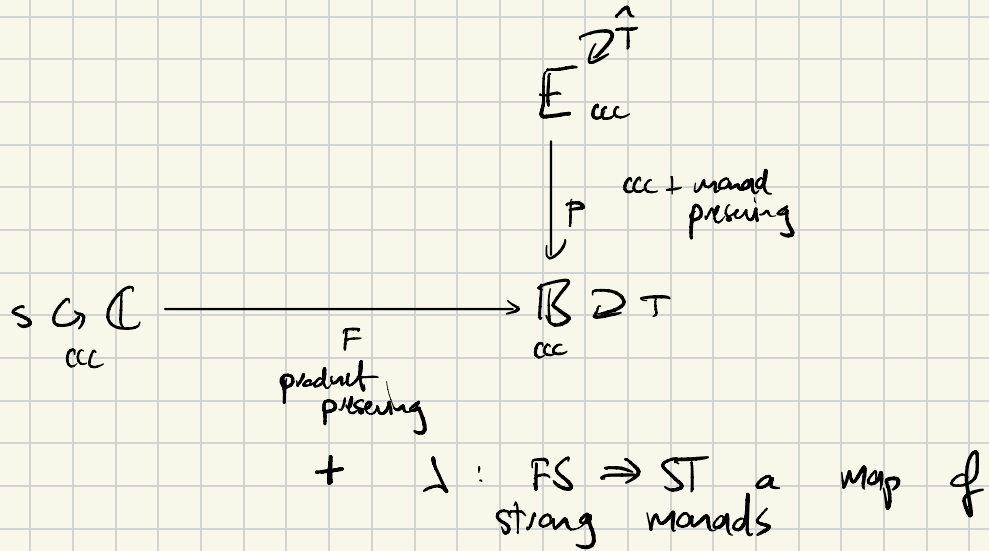 T̂
𝔼 ccc
ccc + monad
p
preserving
S ℂ 𝔹 T
ccc ccc
F
product
preserving
+ λ : FS ⇒ ST a map of
strong monads